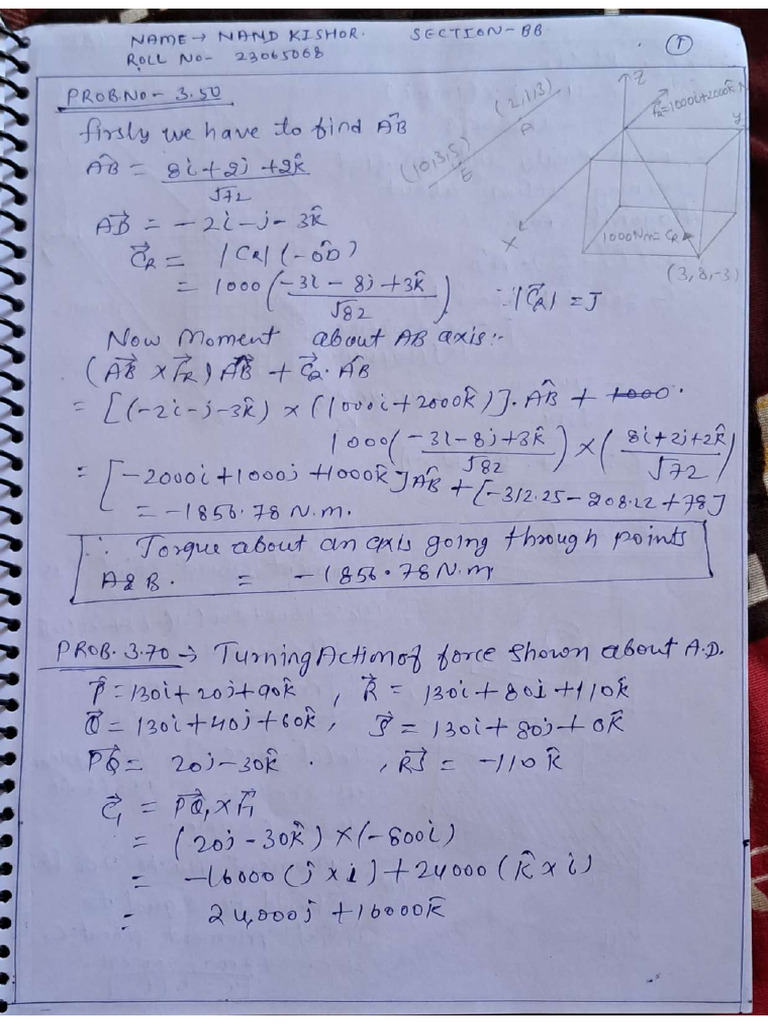 NAME → NAND KISHOR. SECTION-BB
ROLL NO- 23065068
1
PROB.NO- 3.50
firstly we have to find AB̂
AB̂ = (8i+2j+2k̂)/√72
AD⃗ = -2i-j-3k̂
C⃗R = |CR| (-OD̂)
= 1000 ((-3i-8j+3k̂)/√82) ∵|C⃗R| = J
(2,1,3)
A
(10,3,5)
B
Z
FR=1000i+2000k̂ N
y
X
1000Nm=CR
(3,8,-3)
Now Moment about AB axis:-
(AB⃗ × F⃗R) AB̂ + C⃗R. AB̂
= [(-2i-j-3k̂) × (1000i+2000k̂)]. AB̂ +
1000((-3i-8j+3k̂)/√82) × ((8i+2j+2k̂)/√72)
= [-2000i+1000j+1000k̂] AB̂ + [-312.25-208.22+78]
= -1856.78 N.m.
∴ Torque about an axis going through points
A & B. = -1856.78 N.m
PROB. 3.70 → Turning Action of force shown about A.D.
P⃗ = 130i+20j+90k̂ , R⃗ = 130i+80j+110k̂
Q⃗ = 130i+40j+60k̂, S⃗ = 130i+80j+0k̂
PQ⃗ = 20j-30k̂ . , RS⃗ = -110 k̂
C⃗1 = PQ⃗ × F⃗1
= (20j-30k̂) × (-800i)
= -16000 (j × i) + 24000 (k̂ × i)
= 24,000j + 16000k̂